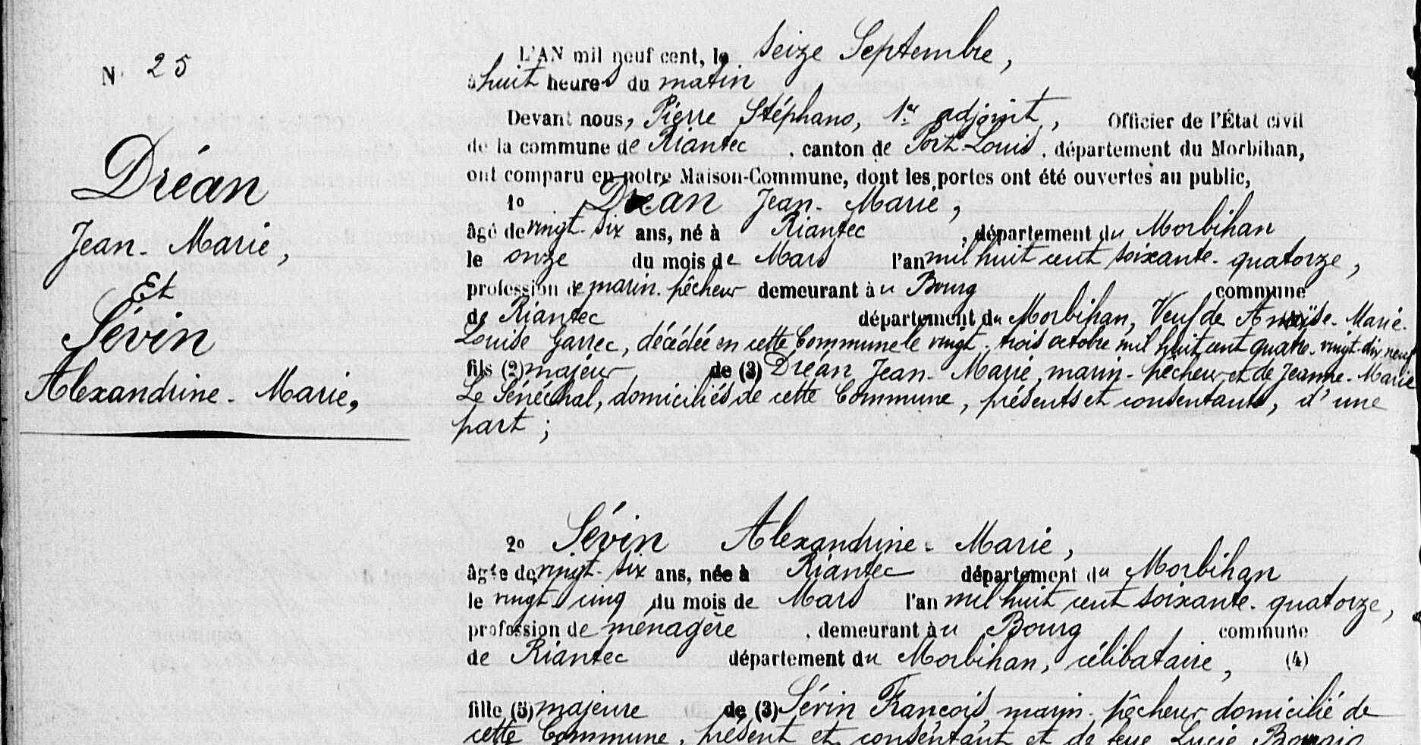 N° 25
Dréan
Jean-Marie,
Et
Sévin
Alexandrine-Marie,
L'AN mil neuf cent, le seize Septembre,
à huit heures du matin
Devant nous, Pierre Stéphano, 1er adjoint, Officier de l'État civil
de la commune de Riantec, canton de Port-Louis, département du Morbihan,
ont comparu en notre Maison-Commune, dont les portes ont été ouvertes au public,
1o Dréan Jean-Marie,
âgé de vingt-six ans, né à Riantec, département du Morbihan
le onze du mois de Mars l'an mil huit cent soixante-quatorze,
profession de marin-pêcheur demeurant à u Bourg commune
de Riantec département du Morbihan, Veuf de Marie-
Louise Garrec, décédée en cette Commune le vingt-trois octobre mil huit cent quatre-vingt-dix-neuf
fils (2) majeur de (3) Dréan Jean-Marie, marin-pêcheur et de Jeanne-Marie
Le Sénéchal, domiciliés de cette Commune, présents et consentants, d'une
part ;
2o Sévin Alexandrine-Marie,
âgée de vingt-six ans, née à Riantec département du Morbihan
le vingt-cinq du mois de Mars l'an mil huit cent soixante-quatorze,
profession de ménagère, demeurant à u Bourg commune
de Riantec département du Morbihan, célibataire, (4)
fille (5) majeure de (3) Sévin François, marin-pêcheur domicilié de
cette Commune, présent et consentant et de feue Lucie